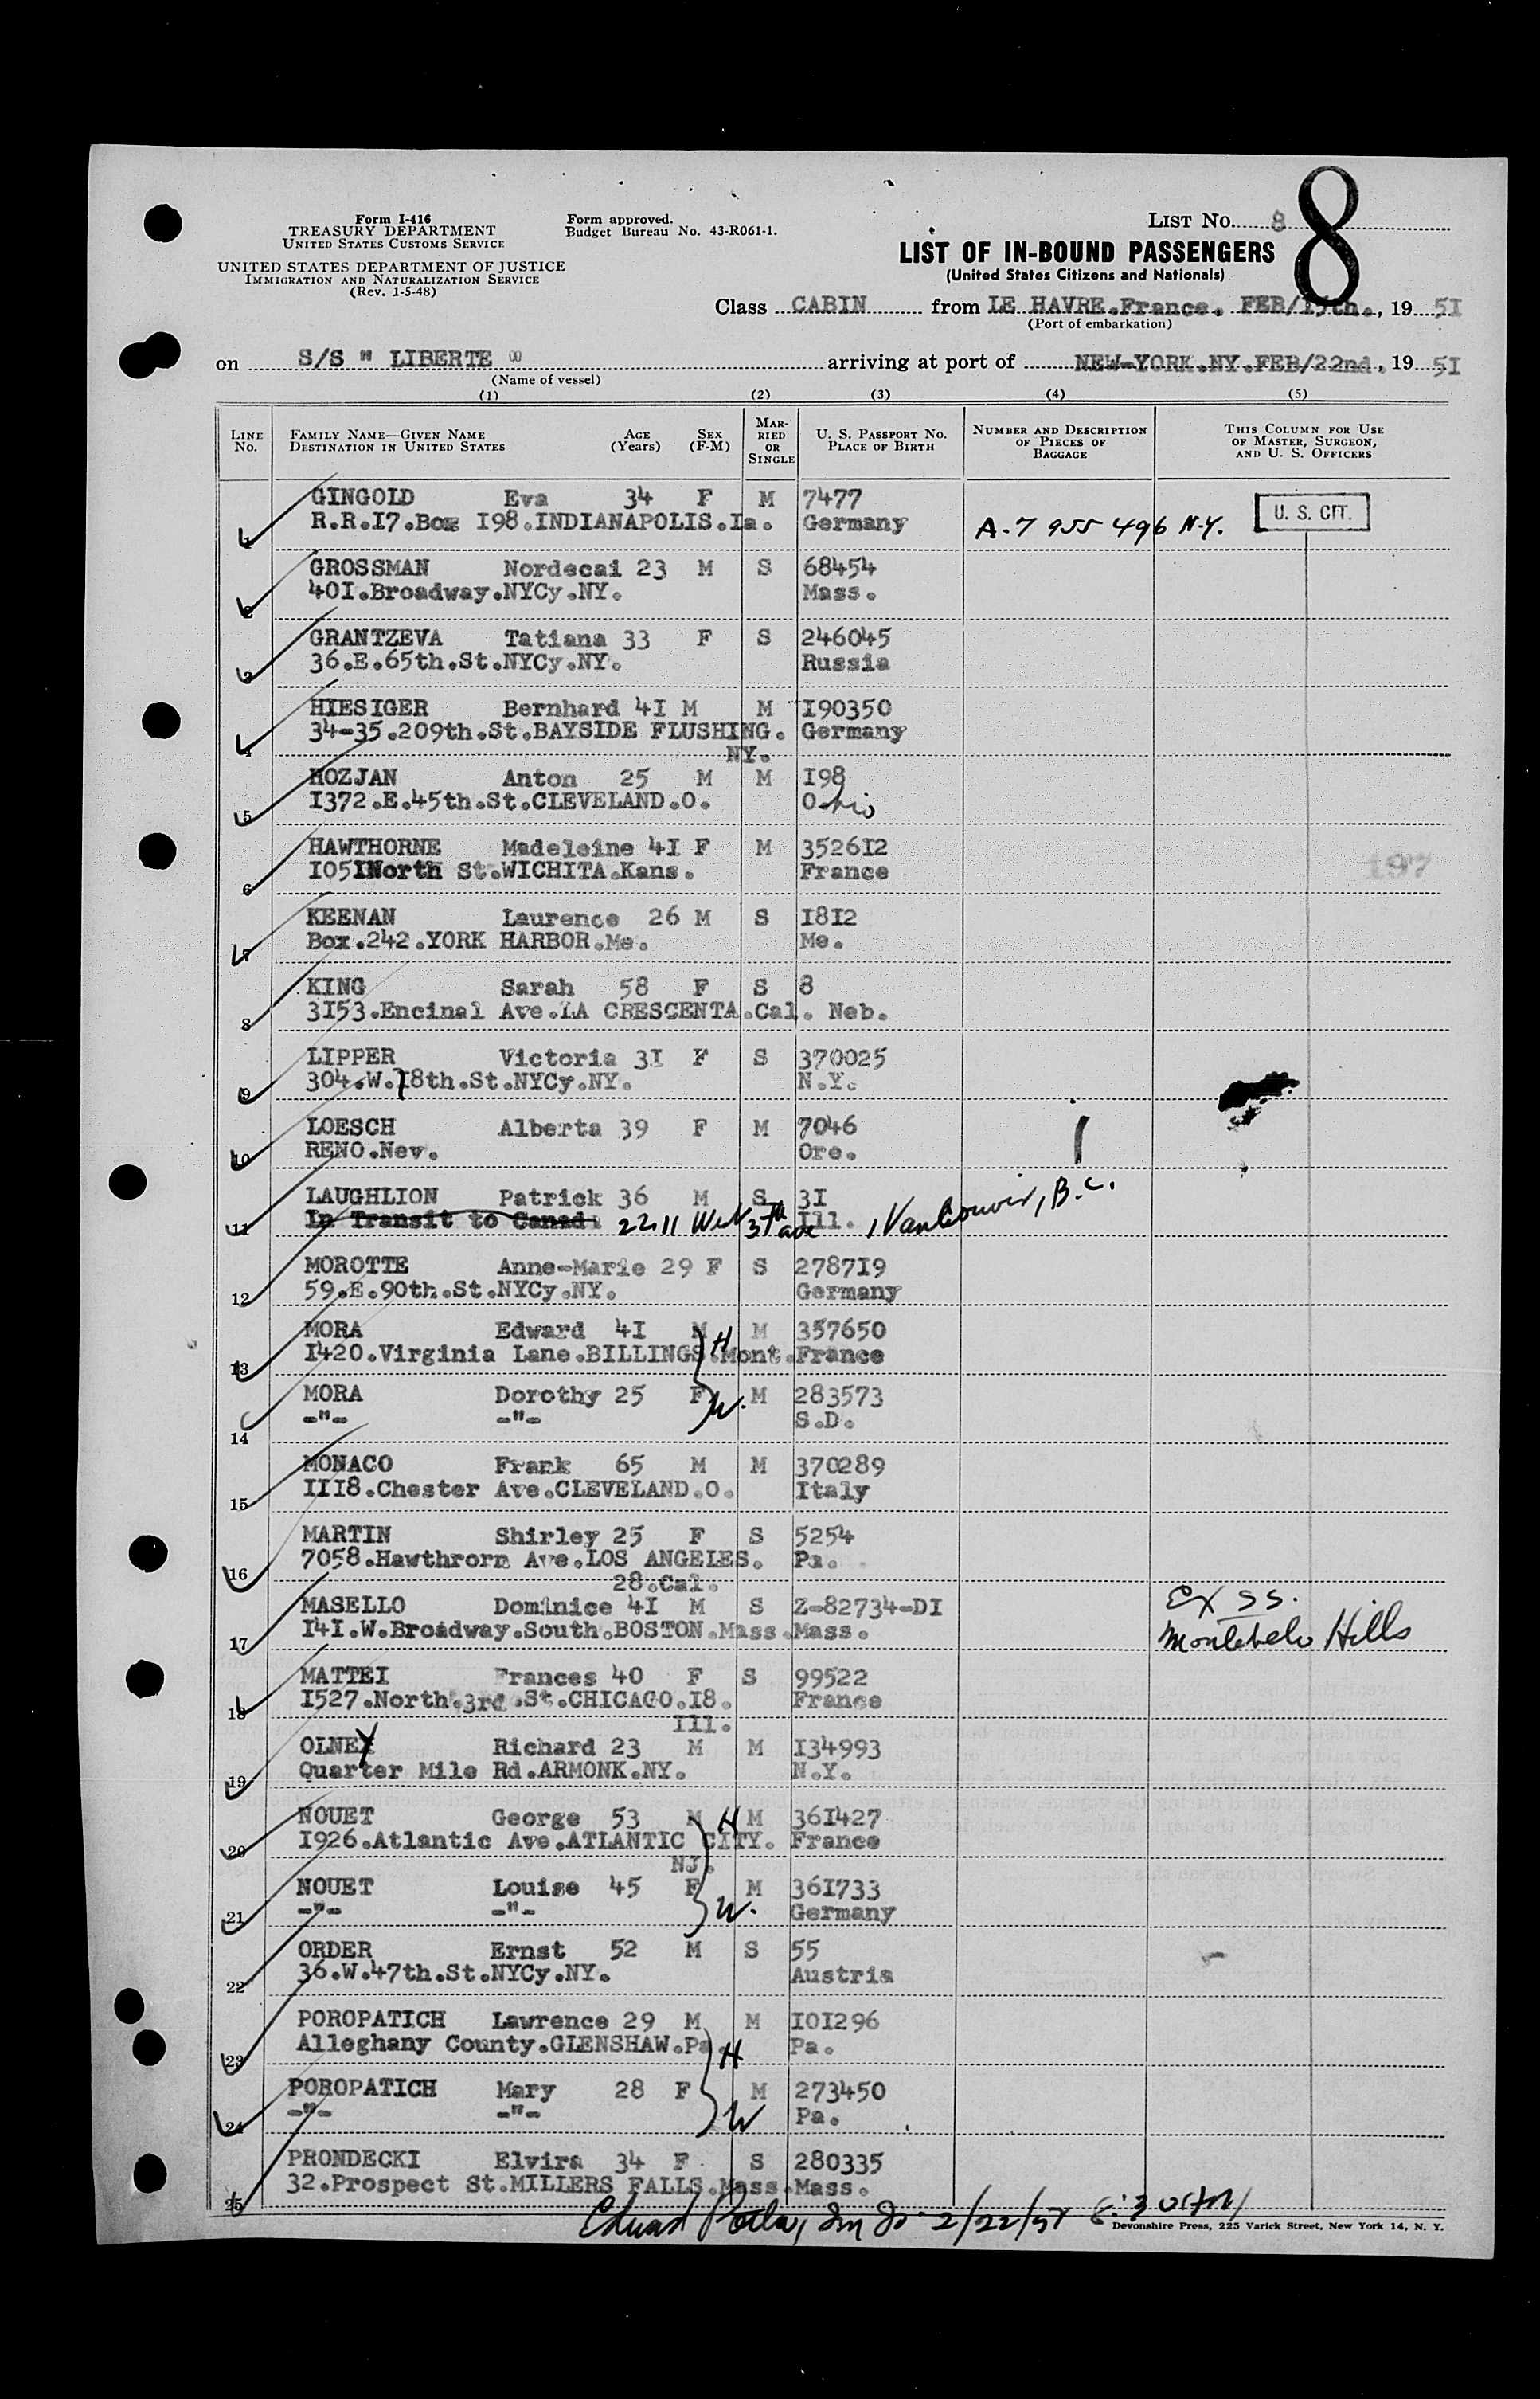 8
Form I-416
TREASURY DEPARTMENT
UNITED STATES CUSTOMS SERVICE
UNITED STATES DEPARTMENT OF JUSTICE
IMMIGRATION AND NATURALIZATION SERVICE
(Rev. 1-5-48)
Form approved.
Budget Bureau No. 43-R061-1.
LIST No. 8
LIST OF IN-BOUND PASSENGERS
(United States Citizens and Nationals)
Class CABIN from LE HAVRE.France. FEB/15th., 19 5I
(Port of embarkation)
on S/S " LIBERTE " arriving at port of NEW-YORK.NY.FEB/22nd., 19 5I
(Name of vessel)
(1) (2) (3) (4) (5)
LINE No. FAMILY NAME—GIVEN NAME DESTINATION IN UNITED STATES AGE (Years) SEX (F-M) MARRIED OR SINGLE U. S. PASSPORT No. PLACE OF BIRTH NUMBER AND DESCRIPTION OF PIECES OF BAGGAGE THIS COLUMN FOR USE OF MASTER, SURGEON, AND U. S. OFFICERS
GINGOLD Eva 34 F M 7477
R.R.I7.Box I98.INDIANAPOLIS.Ia. Germany A-7 955 496 N.Y. U. S. CIT.
GROSSMAN Nordecai 23 M S 68454
2 40I.Broadway.NYCy.NY. Mass.
GRANTZEVA Tatiana 33 F S 246045
3 36.E.65th.St.NYCy.NY. Russia
HIESIGER Bernhard 4I M M I90350
34-35.209th.St.BAYSIDE FLUSHING. Germany
NY.
HOZJAN Anton 25 M M I98
5 I372.E.45th.St.CLEVELAND.O. Ohio
HAWTHORNE Madeleine 4I F M 3526I2
6 I05INorth St.WICHITA.Kans. France 197
KEENAN Laurence 26 M S I8I2
7 Box.242.YORK HARBOR.Me. Me.
KING Sarah 58 F S 8
8 3I53.Encinal Ave.LA CRESCENTA.Cal. Neb.
LIPPER Victoria 3I F S 370025
9 304.W.18th.St.NYCy.NY. N.Y.
LOESCH Alberta 39 F M 7046
10 RENO.Nev. Ore.
LAUGHLION Patrick 36 M S 3I
11 In Transit to Canad 2211 West 37th ave Ill. , Vancouver, B.C.
MOROTTE Anne-Marie 29 F S 2787I9
12 59.E.90th.St.NYCy.NY. Germany
MORA Edward 4I M H M 357650
13 I420.Virginia Lane.BILLINGS.Mont. France
MORA Dorothy 25 F W. M 283573
14 -"- -"- S.D.
MONACO Frank 65 M M 370289
15 III8.Chester Ave.CLEVELAND.O. Italy
MARTIN Shirley 25 F S 5254
16 7058.Hawthrorn Ave.LOS ANGELES. Pa.
28.Cal.
MASELLO Dominice 4I M S Z-82734-DI Ex SS.
17 I4I.W.Broadway.South.BOSTON.Mass. Mass. Montebelo Hills
MATTEI Frances 40 F S 99522
18 I527.North.3rd.St.CHICAGO.I8. France
Ill.
OLNEY Richard 23 M M I34993
19 Quarter Mile Rd.ARMONK.NY. N.Y.
NOUET George 53 M H M 36I427
20 I926.Atlantic Ave.ATLANTIC CITY. France
NJ.
NOUET Louise 45 F W. M 36I733
21 -"- -"- Germany
ORDER Ernst 52 M S 55
22 36.W.47th.St.NYCy.NY. Austria
POROPATICH Lawrence 29 M H M I0I296
23 Alleghany County.GLENSHAW.Pa. Pa.
POROPATICH Mary 28 F W M 273450
24 -"- -"- Pa.
PRONDECKI Elvira 34 F S 280335
25 32.Prospect St.MILLERS FALLS.Mass. Mass.
2/22/51
Devonshire Press, 225 Varick Street, New York 14, N. Y.